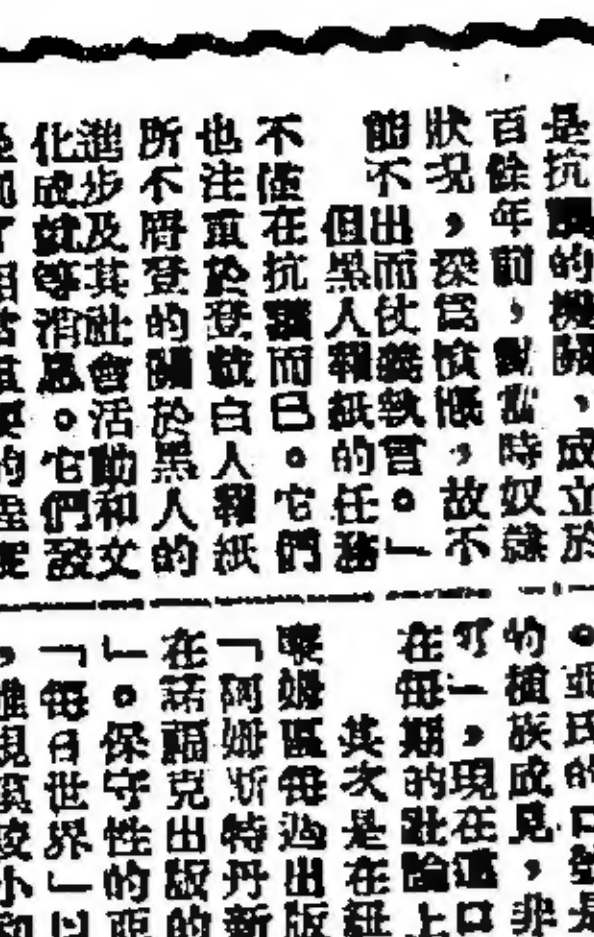 是抗議的機關，成立於
百餘年前，對當時奴隸
狀況，深爲憤慨，故不
能不出而仗義執言。」
但黑人報紙的任務
不僅在抗議而已。它們
也注重於登載白人報紙
所不屑登的關於黑人的
進步及其社會活動和文
化成就等消息。它們發
的
。亞氏的口號是
的種族成見，非
可一，現在這口
在每期的社論上
其次是在紐
姆區每週出版
「阿姆斯特丹新
在諾福克出版的
」。保守性的
「每日世界」以
，雖規模較小和